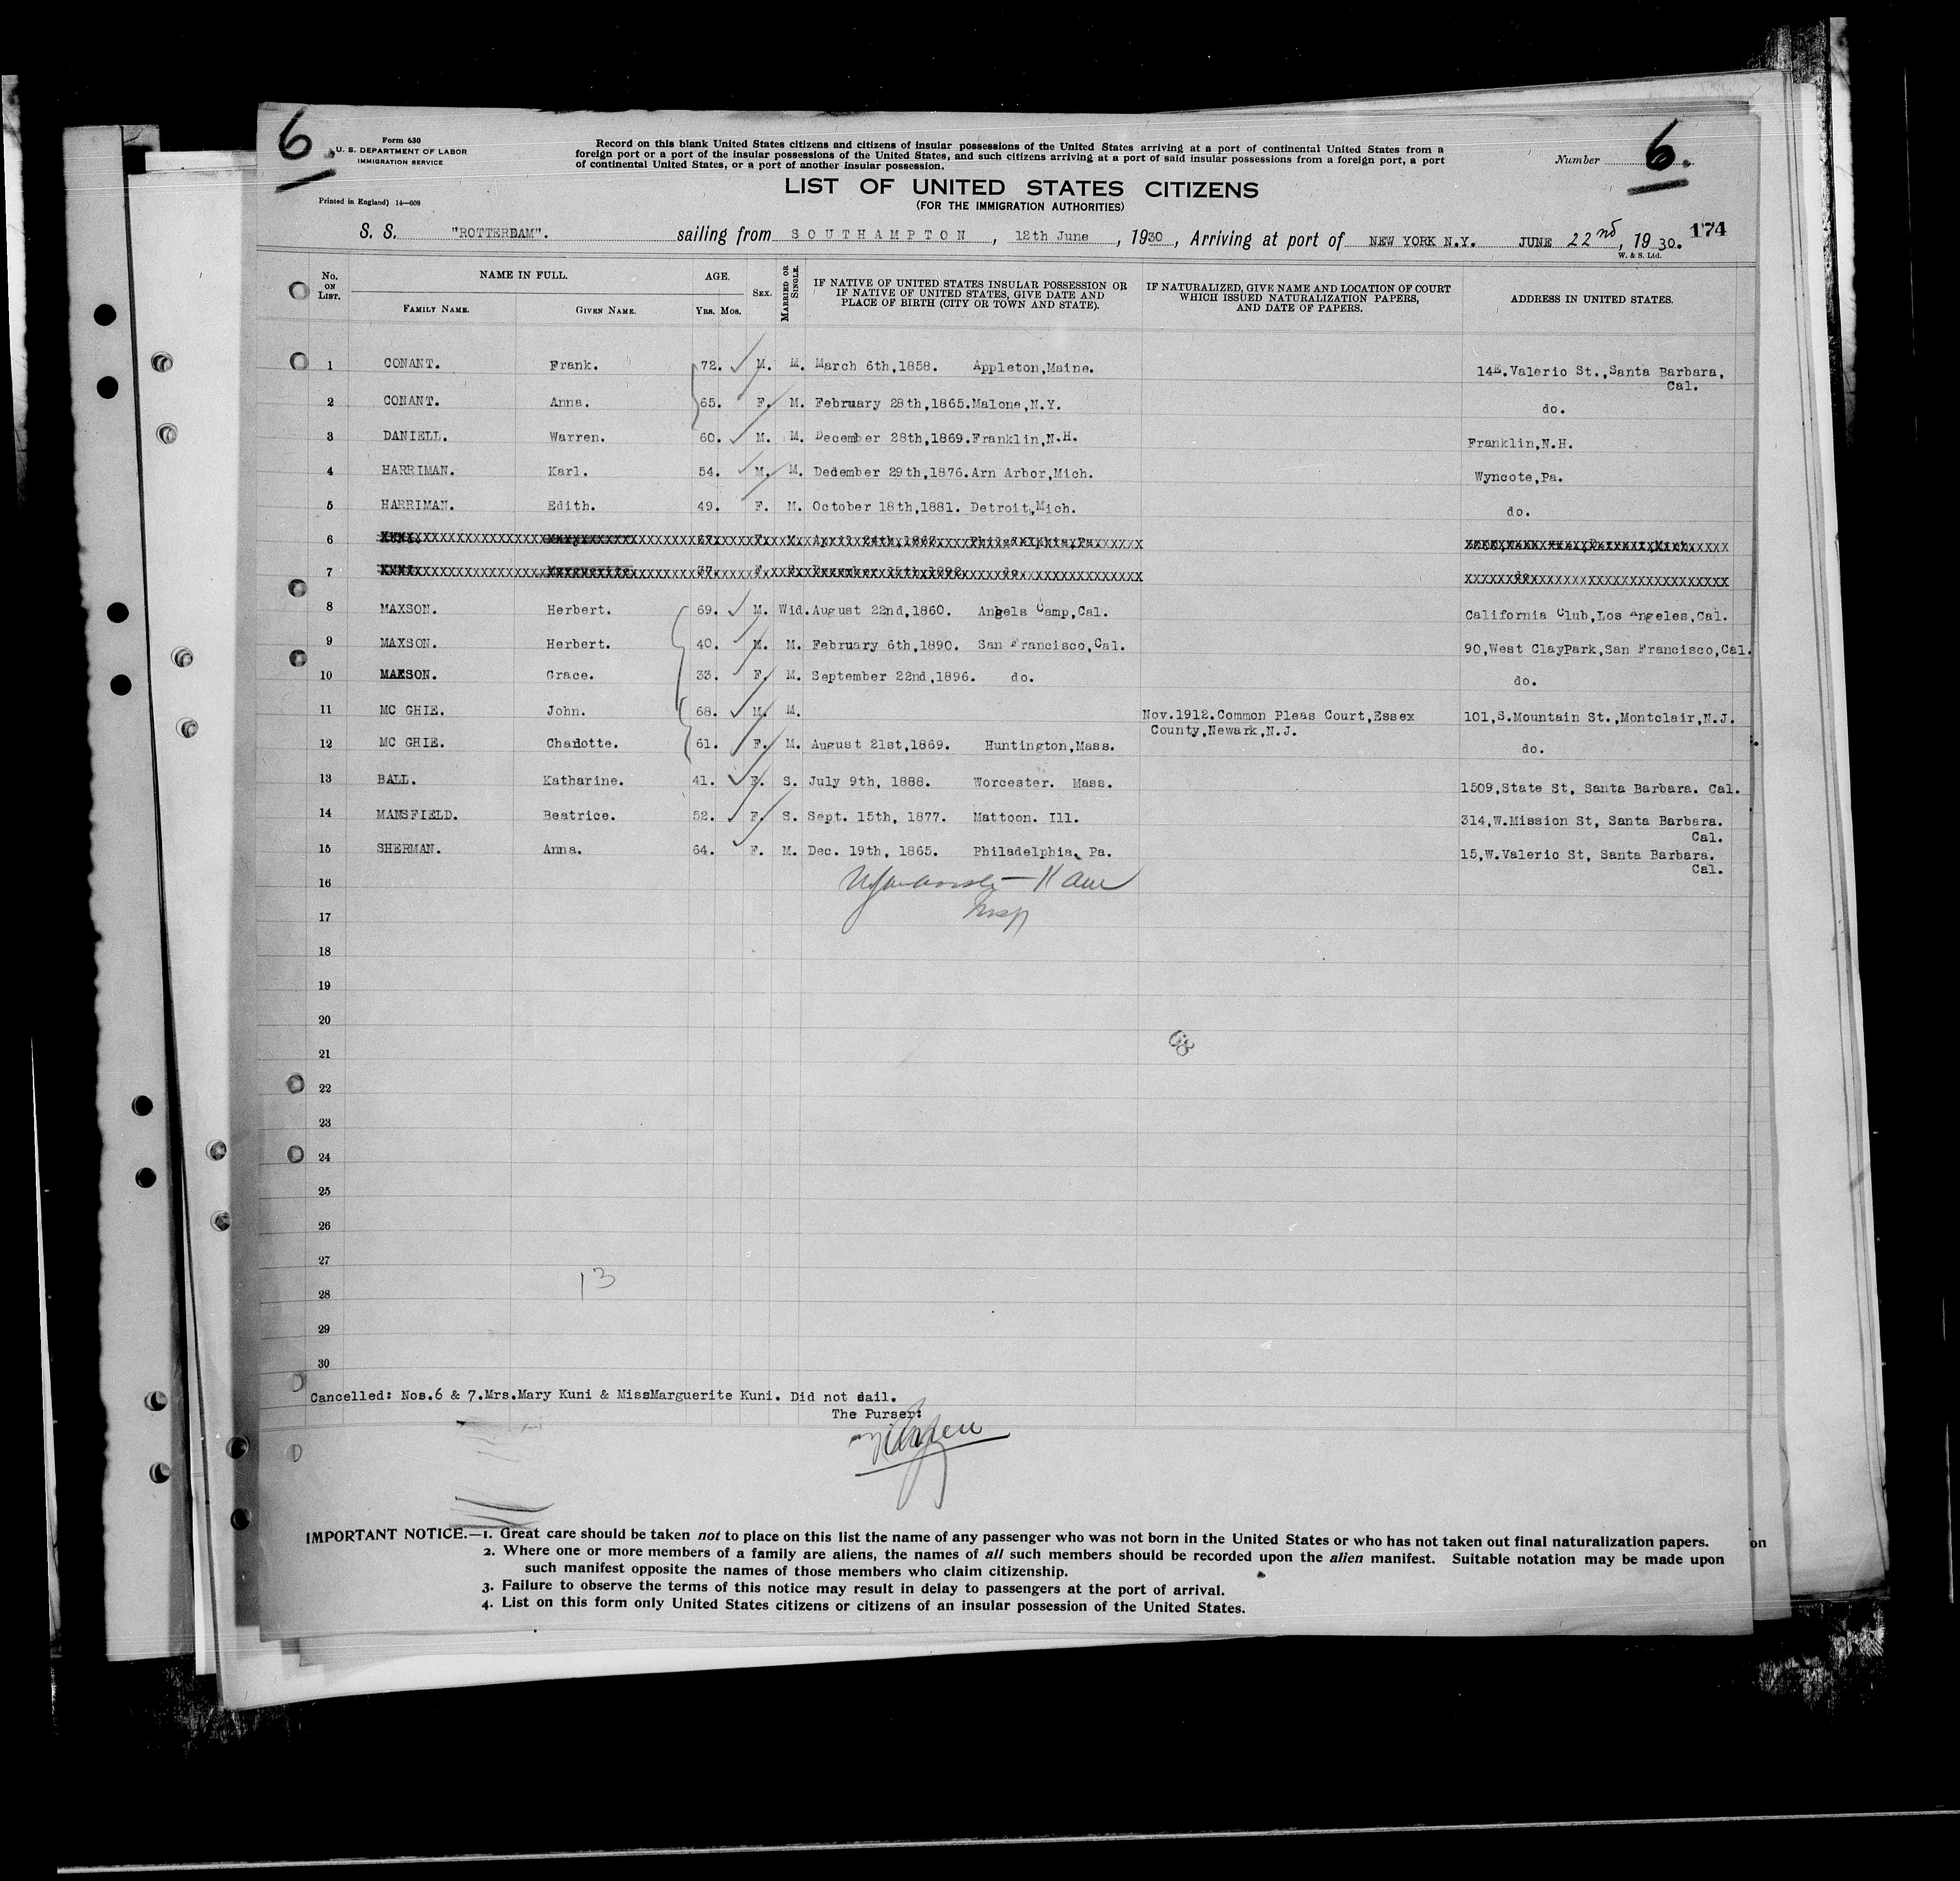 6.
Form 630
U. S. DEPARTMENT OF LABOR
IMMIGRATION SERVICE
Printed in England) 14—608
Record on this blank United States citizens and citizens of insular possessions of the United States arriving at a port of continental United States from a
foreign port or a port of the insular possessions of the United States, and such citizens arriving at a port of said insular possessions from a foreign port, a port
of continental United States, or a port of another insular possession.
Number 6.
LIST OF UNITED STATES CITIZENS
(FOR THE IMMIGRATION AUTHORITIES)
174
S. S. "ROTTERDAM". sailing from SOUTHAMPTON, 12th June, 1930, Arriving at port of NEW YORK N.Y. JUNE 22nd, 1930.
W. & S. Ltd.
No. ON LIST. NAME IN FULL. AGE. SEX. MARRIED OR SINGLE. IF NATIVE OF UNITED STATES INSULAR POSSESSION OR IF NATIVE OF UNITED STATES, GIVE DATE AND PLACE OF BIRTH (CITY OR TOWN AND STATE). IF NATURALIZED, GIVE NAME AND LOCATION OF COURT WHICH ISSUED NATURALIZATION PAPERS, AND DATE OF PAPERS. ADDRESS IN UNITED STATES.
FAMILY NAME. GIVEN NAME. YRS. MOS.
1 CONANT. Frank. 72. M. M. March 6th,1858. Appleton,Maine. 14E.Valerio St.,Santa Barbara,
Cal.
2 CONANT. Anna. 65. F. M. February 28th,1865.Malone,N.Y. do.
3 DANIELL. Warren. 60. M. M. December 28th,1869.Franklin,N.H. Franklin,N.H.
4 HARRIMAN. Karl. 54. M. M. Dedember 29th,1876.Arn Arbor,Mich. Wyncote,Pa.
5 HARRIMAN. Edith. 49. F. M. October 18th,1881. Detroit,Mich. do.
6
7
8 MAXSON. Herbert. 69. M. Wid. August 22nd,1860. Angels Camp,Cal. California Club,Los Angeles,Cal.
9 MAXSON. Herbert. 40. M. M. February 6th,1890. San Francisco,Cal. 90,West ClayPark,San Francisco,Cal.
10 MAXSON. Grace. 33. F. M. September 22nd,1896. do. do.
11 MC GHIE. John. 68. M. M. Nov.1912.Common Pleas Court,Essex 101,S.Mountain St.,Montclair,N.J.
County,Newark,N.J.
12 MC GHIE. Charlotte. 61. F. M. August 21st,1869. Huntington,Mass. do.
13 BALL. Katharine. 41. F. S. July 9th, 1888. Worcester. Mass. 1509,State St, Santa Barbara. Cal.
14 MANSFIELD. Beatrice. 52. F. S. Sept. 15th, 1877. Mattoon. Ill. 314,W.Mission St, Santa Barbara.
Cal.
15 SHERMAN. Anna. 64. F. M. Dec. 19th, 1865. Philadelphia, Pa. 15,W.Valerio St, Santa Barbara.
Cal.
16
Insp
17
18
19
20
21
22
23
24
25
26
27
13
28
29
30
Cancelled: Nos.6 & 7.Mrs.Mary Kuni & MissMarguerite Kuni. Did not sail.
The Purser:
IMPORTANT NOTICE.—1. Great care should be taken not to place on this list the name of any passenger who was not born in the United States or who has not taken out final naturalization papers.
on
2. Where one or more members of a family are aliens, the names of all such members should be recorded upon the alien manifest. Suitable notation may be made upon
such manifest opposite the names of those members who claim citizenship.
3. Failure to observe the terms of this notice may result in delay to passengers at the port of arrival.
4. List on this form only United States citizens or citizens of an insular possession of the United States.